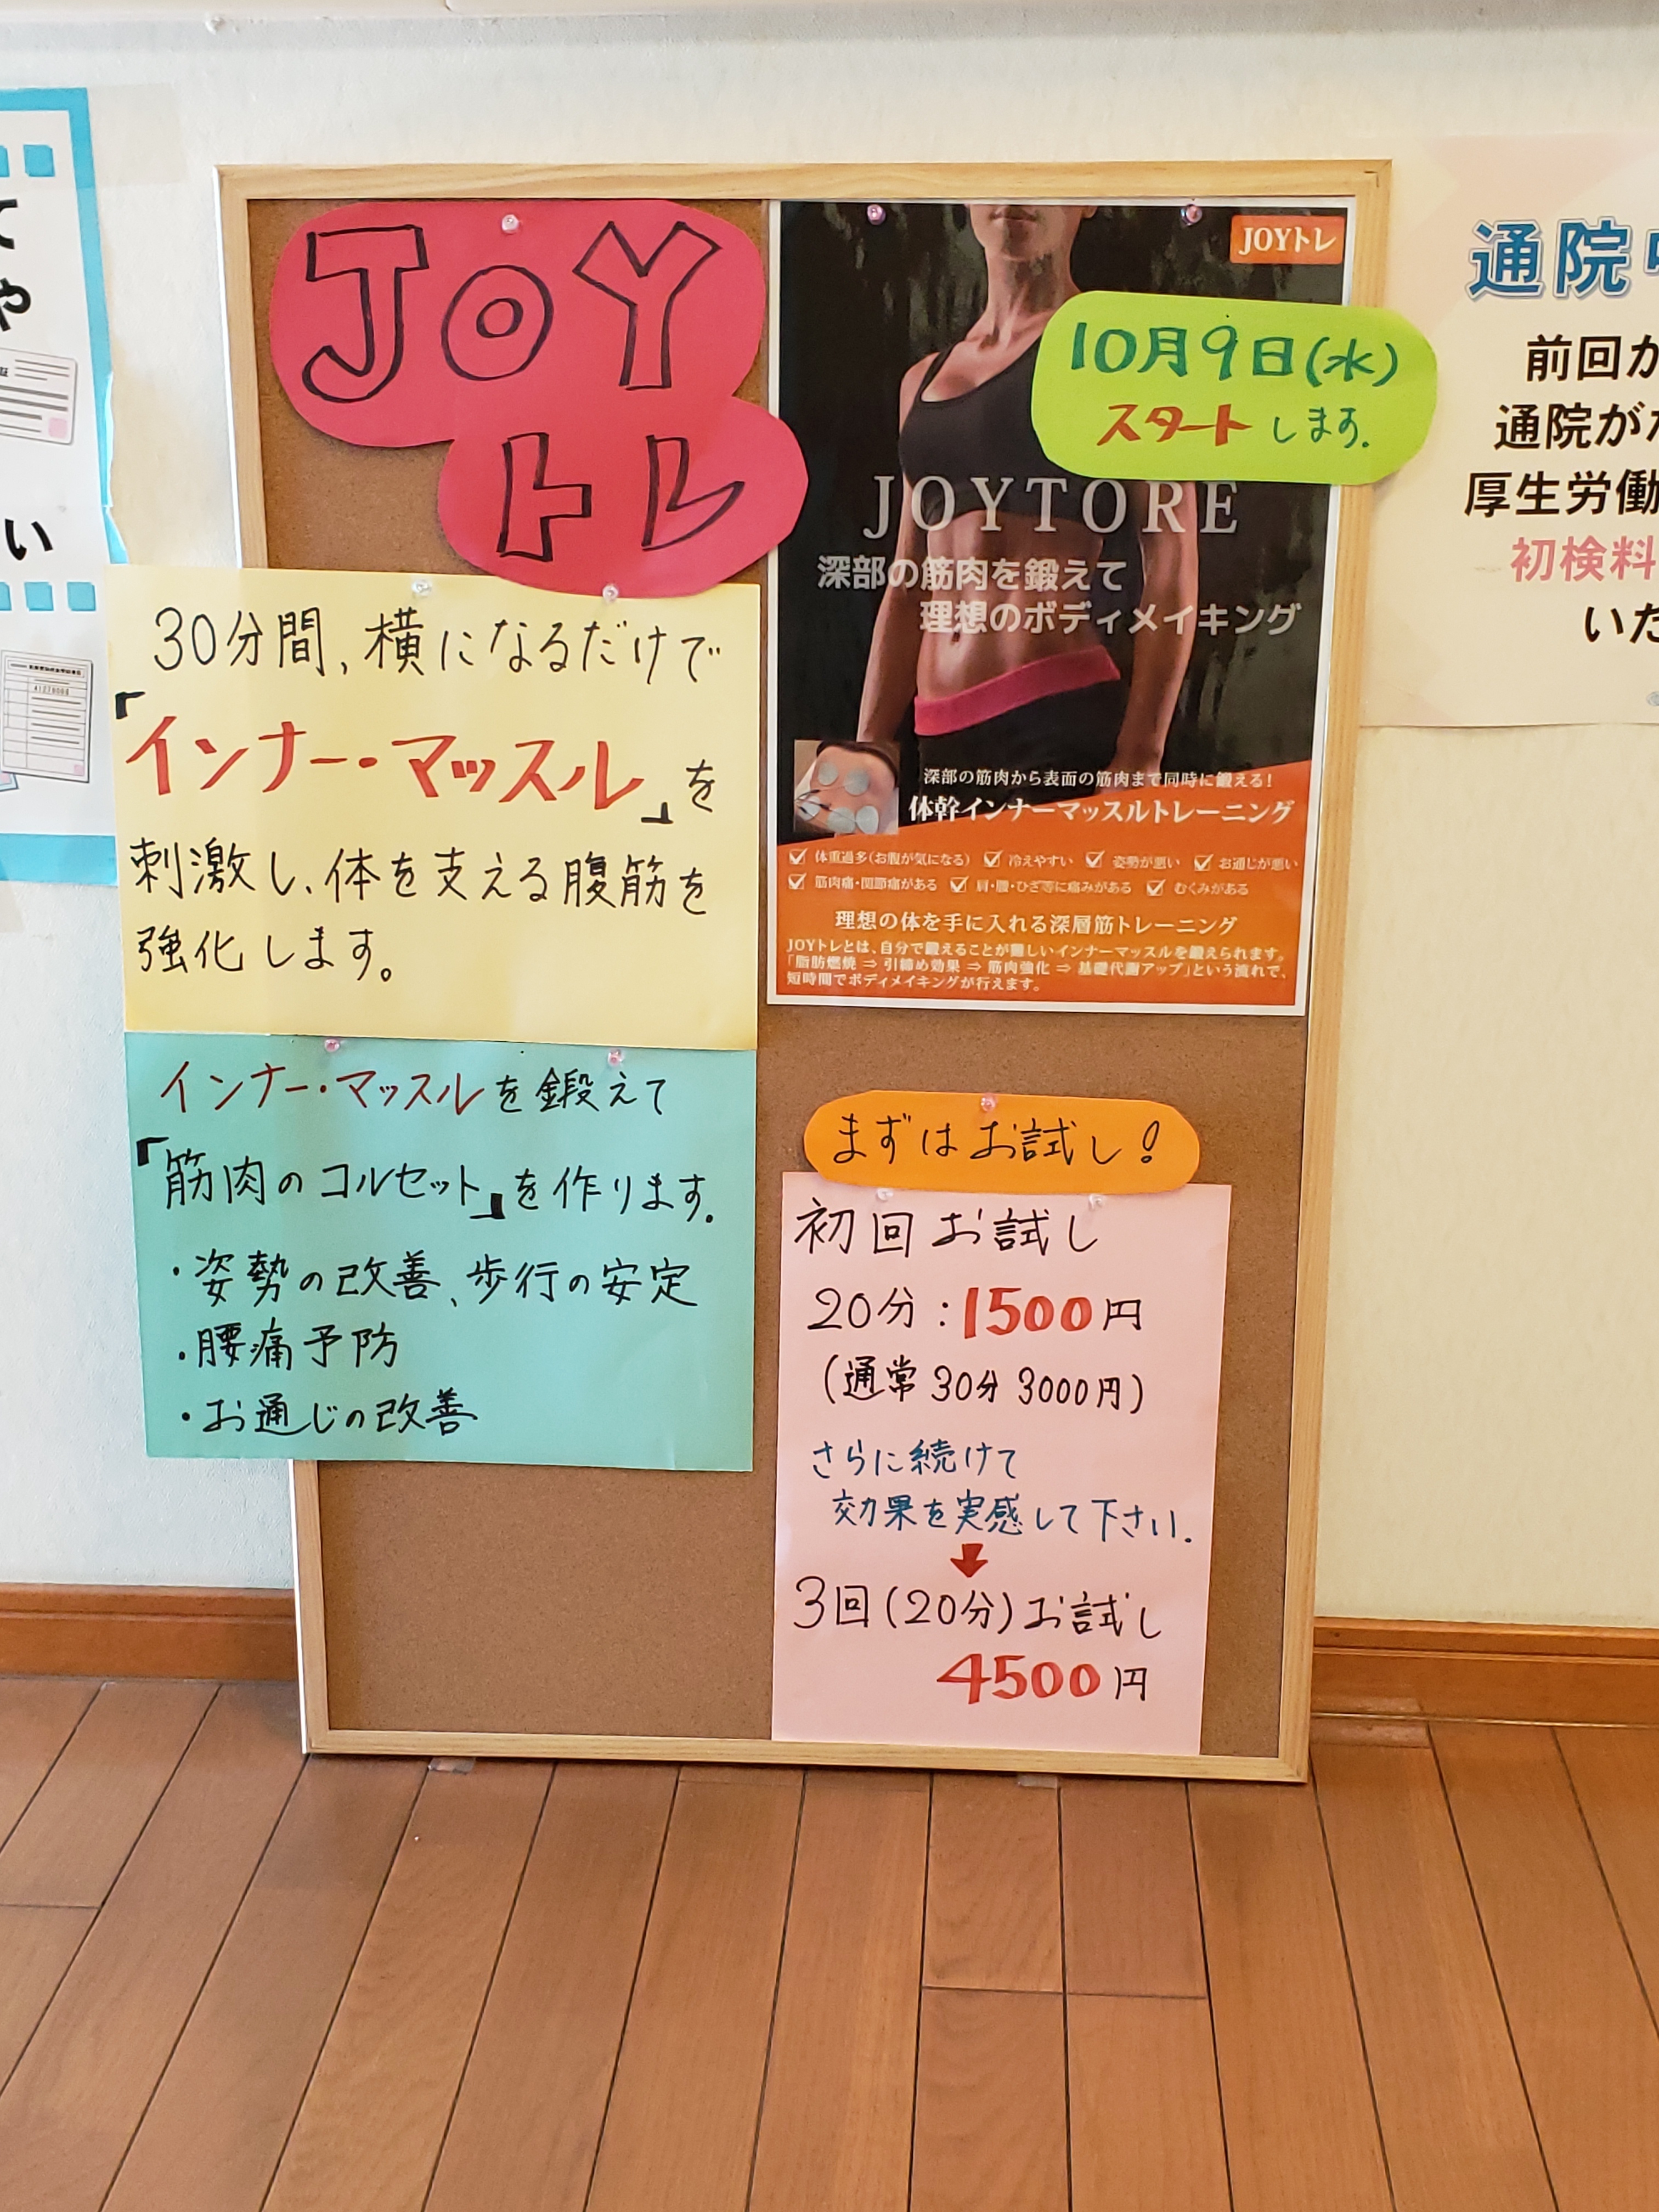 て
や
い
JOY
トレ
30分間、横になるだけで
「インナー・マッスル」を
刺激し、体を支える腹筋を
強化します。
インナー・マッスルを鍛えて
「筋肉のコルセット」を作ります。
・姿勢の改善、歩行の安定
・腰痛予防
・お通じの改善
JOYトレ
10月9日(水)
スタートします。
JOYTORE
深部の筋肉を鍛えて
理想のボディメイキング
深部の筋肉から表面の筋肉まで同時に鍛える!
体幹インナーマッスルトレーニング
体重過多(お腹が気になる) 冷えやすい 姿勢が悪い お通じが悪い
筋肉痛・関節痛がある 肩・腰・ひざ等に痛みがある むくみがある
理想の体を手に入れる深層筋トレーニング
JOYトレとは、自分で鍛えることが難しいインナーマッスルを鍛えられます。
「脂肪燃焼 ⇒ 引締め効果 ⇒ 筋肉強化 ⇒ 基礎代謝アップ」という流れで、
短時間でボディメイキングが行えます。
まずはお試し!
初回お試し
20分:1500円
(通常30分3000円)
さらに続けて
効果を実感して下さい。
3回(20分)お試し
4500円
通院
前回か
通院が
厚生労働
初検料
いた